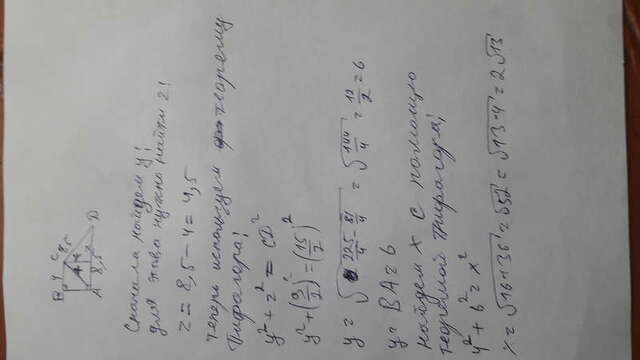 B 4 C
7,5
x
y
z
A 8,5 D
Сначала найдем y!
для этого нужно найти z!
z = 8,5 - 4 = 4,5
теперь используем теорему
Пифагора!
y² + z² = CD²
y² + (9/2)² = (15/2)²
y = √(225/4 - 81/4) = √(144/4) = 12/2 = 6
y = BA = 6
Найдем x с помощью
теоремой Пифагора!
4² + 6² = x²
x = √(16+36) = √52 = √(13·4) = 2√13